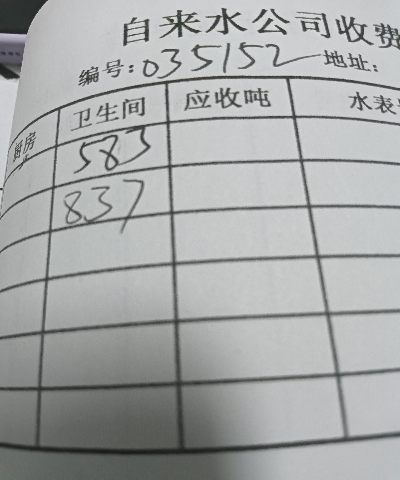 自来水公司收费
编号:035152 地址:
厨房 卫生间 应收吨 水表
583
837